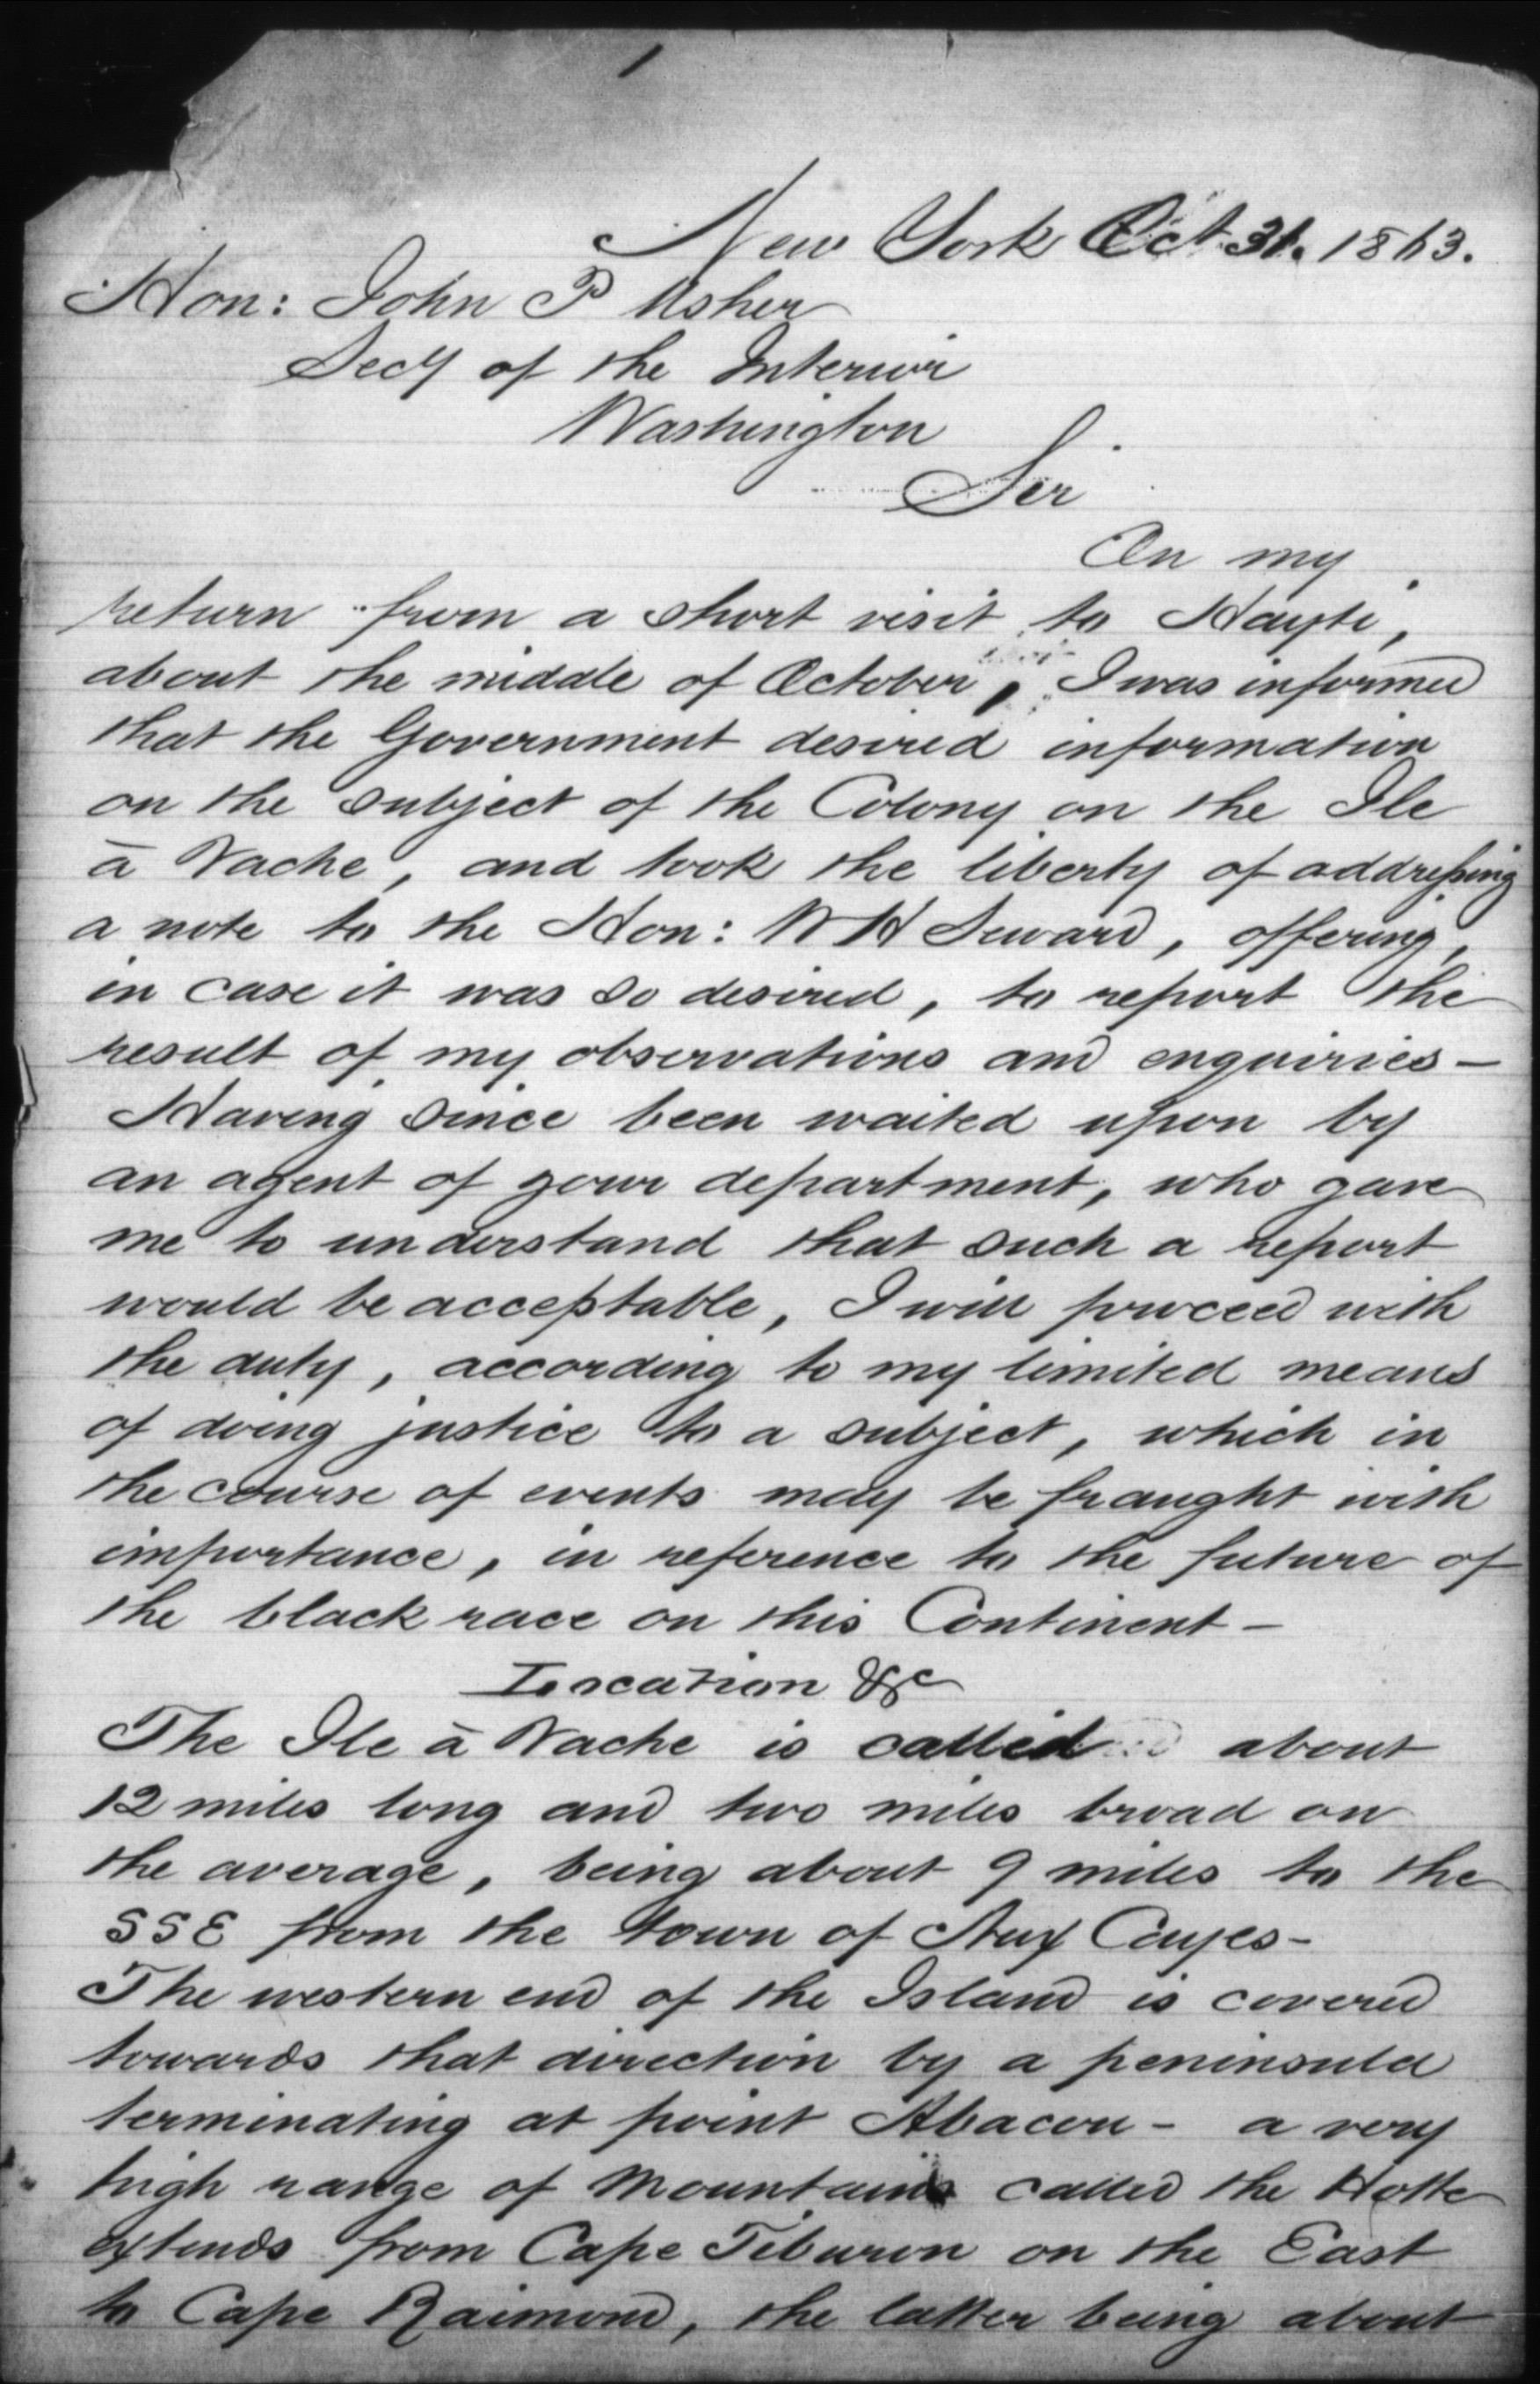 New York Oct 31. 1863.
Hon: John P Usher
Secy of the Interior
Washington
Sir
On my
return from a short visit to Hayti,
about the middle of October, I was informed
that the Government desired information
on the subject of the Colony on the Ile
à Vache, and took the liberty of addressing
a note to the Hon: W H Seward, offering,
in case it was so desired, to report the
result of my observations and enquiries -
Having since been waited upon by
an agent of your department, who gave
me to understand that such a report
would be acceptable, I will proceed with
the duty, according to my limited means
of doing justice to a subject, which in
the course of events may be fraught with
importance, in reference to the future of
the black race on this Continent -
Location &c
The Ile à Vache is called about
12 miles long and two miles broad on
the average, being about 9 miles to the
SSE from the town of Aux Cayes -
The western end of the Island is covered
towards that direction by a peninsula
terminating at point Abacou - a very
high range of Mountains called the Hotte
extends from Cape Tiburon on the East
to Cape Raimond, the latter being about